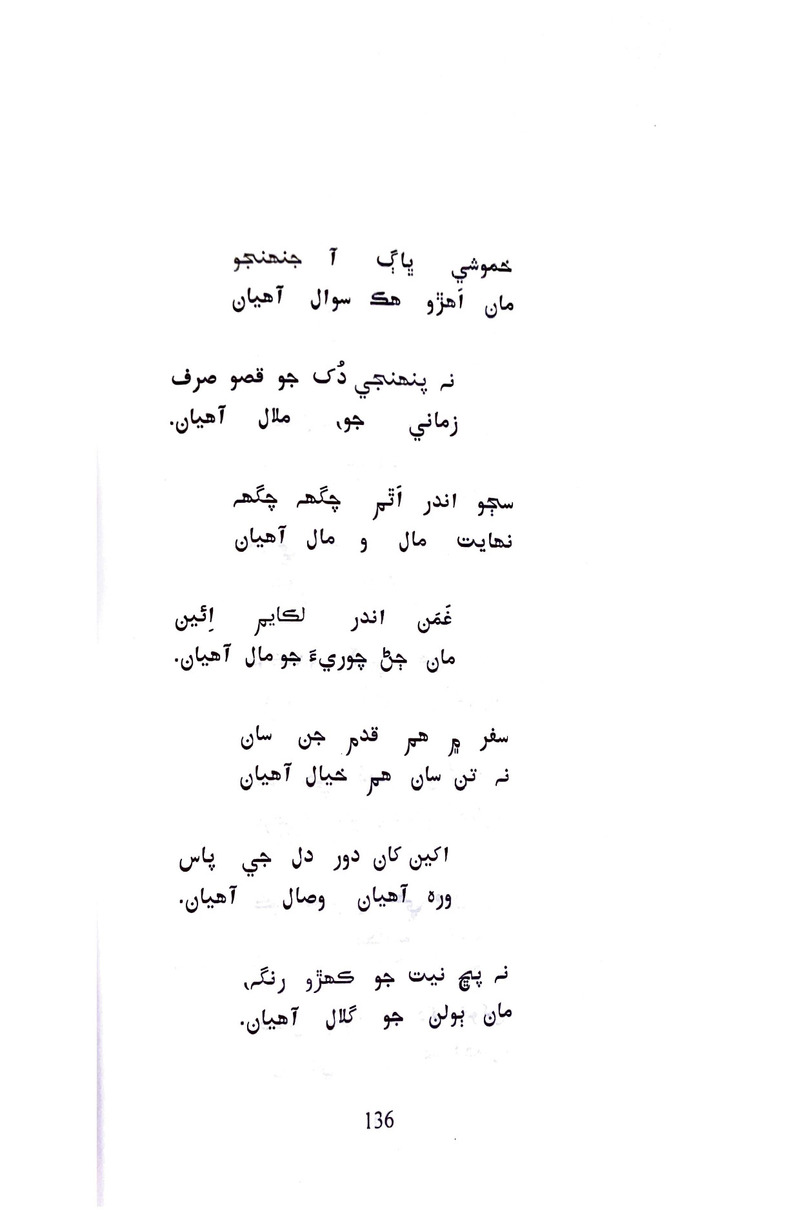 خموشي ڀاڳ آ جنھنجو
مان اَھڙو ھڪ سوال آھيان
نہ پنھنجي دُک جو قصو صرف
زماني جو، ملال آھيان.
سڄو اندر اَٿم چڳھہ چڳھہ
نھايت مال و مال آھيان
غَمَن اندر لڪايم اِئين
مان ڄڻ چوريءَ جو مال آھيان.
سفر ۾ ھم قدم جن سان
نہ تن سان ھم خيال آھيان
اکين کان دور دل جي پاس
ورہ آھيان وصال آھيان.
نہ پڇ نيت جو ڪھڙو رنگ،
مان ٻولن جو گلال آھيان.
136